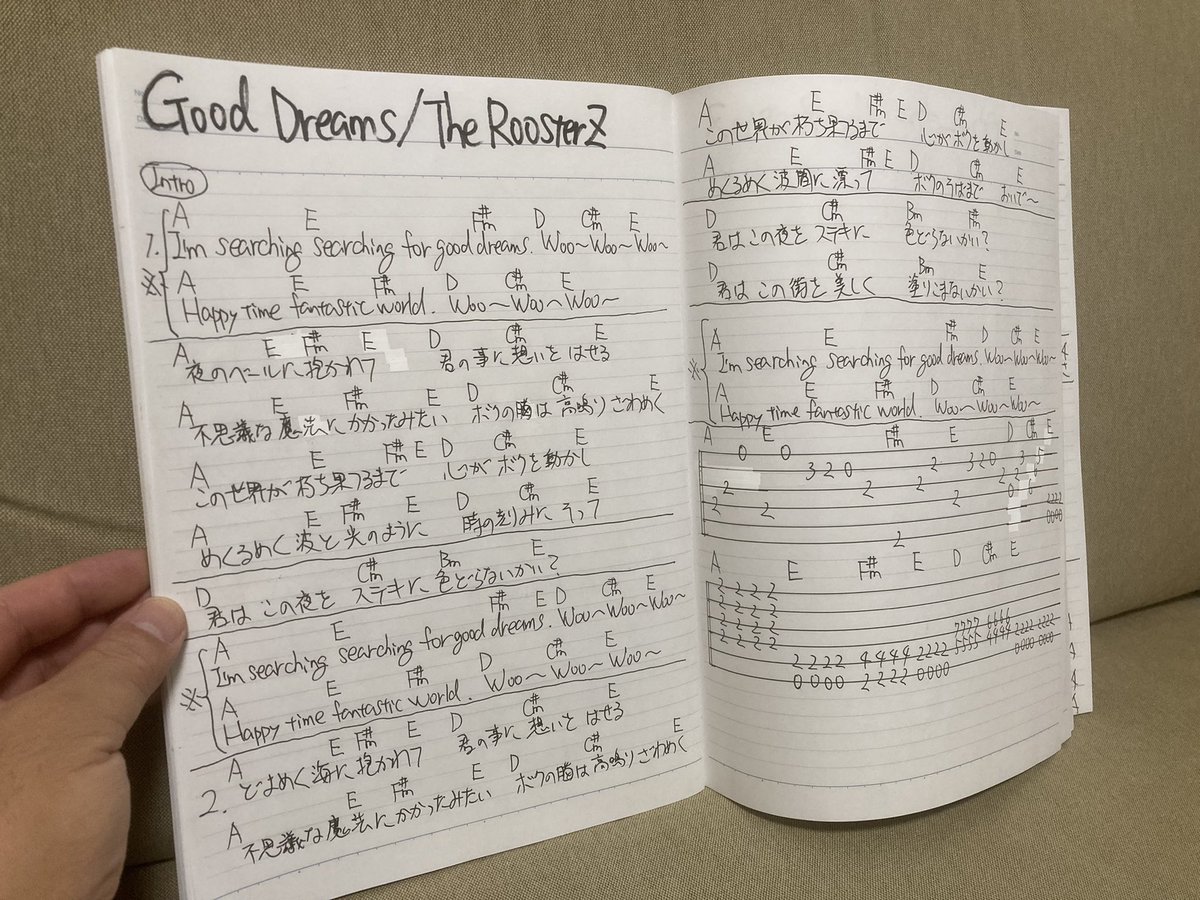 Good Dreams/The RoosterZ
Intro
A E F#m D C#m E
1. I'm searching searching for good dreams. Woo~Woo~Woo~
※ A E F#m D C#m E
Happy time fantastic world. Woo~Woo~Woo~
A E F#m E D C#m E
夜のベールに抱かれて 君の事に想いを はせる
A E F#m E D C#m E
不思議な魔法にかかったみたい ボクの胸は高鳴りざわめく
A E F#m E D C#m E
この世界が朽ち果つるまで 心がボクを動かし
A E F#m E D C#m E
めくるめく波と光のように 時の刻みにそって
D C#m Bm E
君はこの夜を ステキに色どらないかい?
A E F#m E D C#m E
I'm searching searching for good dreams. Woo~Woo~Woo~
※ A E F#m D C#m E
Happy time fantastic world. Woo~Woo~Woo~
A E F#m E D C#m E
2. どよめく海に抱かれて 君の事に想いを はせる
A E F#m E D C#m E
不思議な魔法にかかったみたい ボクの胸は高鳴りざわめく
A E F#m E D C#m E
この世界が朽ち果つるまで 心がボクを動かし
A E F#m E D C#m E
めくるめく波間に漂って ボクのそばまで おいで~
D C#m Bm F#m
君はこの夜を ステキに 色どらないかい?
D C#m Bm E
君はこの街を美しく 塗りこまないかい?
A E F#m D C#m E
※ I'm searching searching for good dreams. Woo~Woo~Woo~
A E F#m D C#m E
Happy time fantastic world. Woo~Woo~Woo~
A E F#m E D C#m E
0 0 3 2 0 2 3 2 0 3
2 2 2 2 2
2 2 2 0
2
2222
0000
A E F#m E D C#m E
2 2 2 2
2 2 2 2
2 2 2 2
2 2 2 2 7777 6666
2 2 2 2 4 4 4 4 2222 5555 4444 2222 2222
0 0 0 0 2 2 2 2 0000 0000 0000